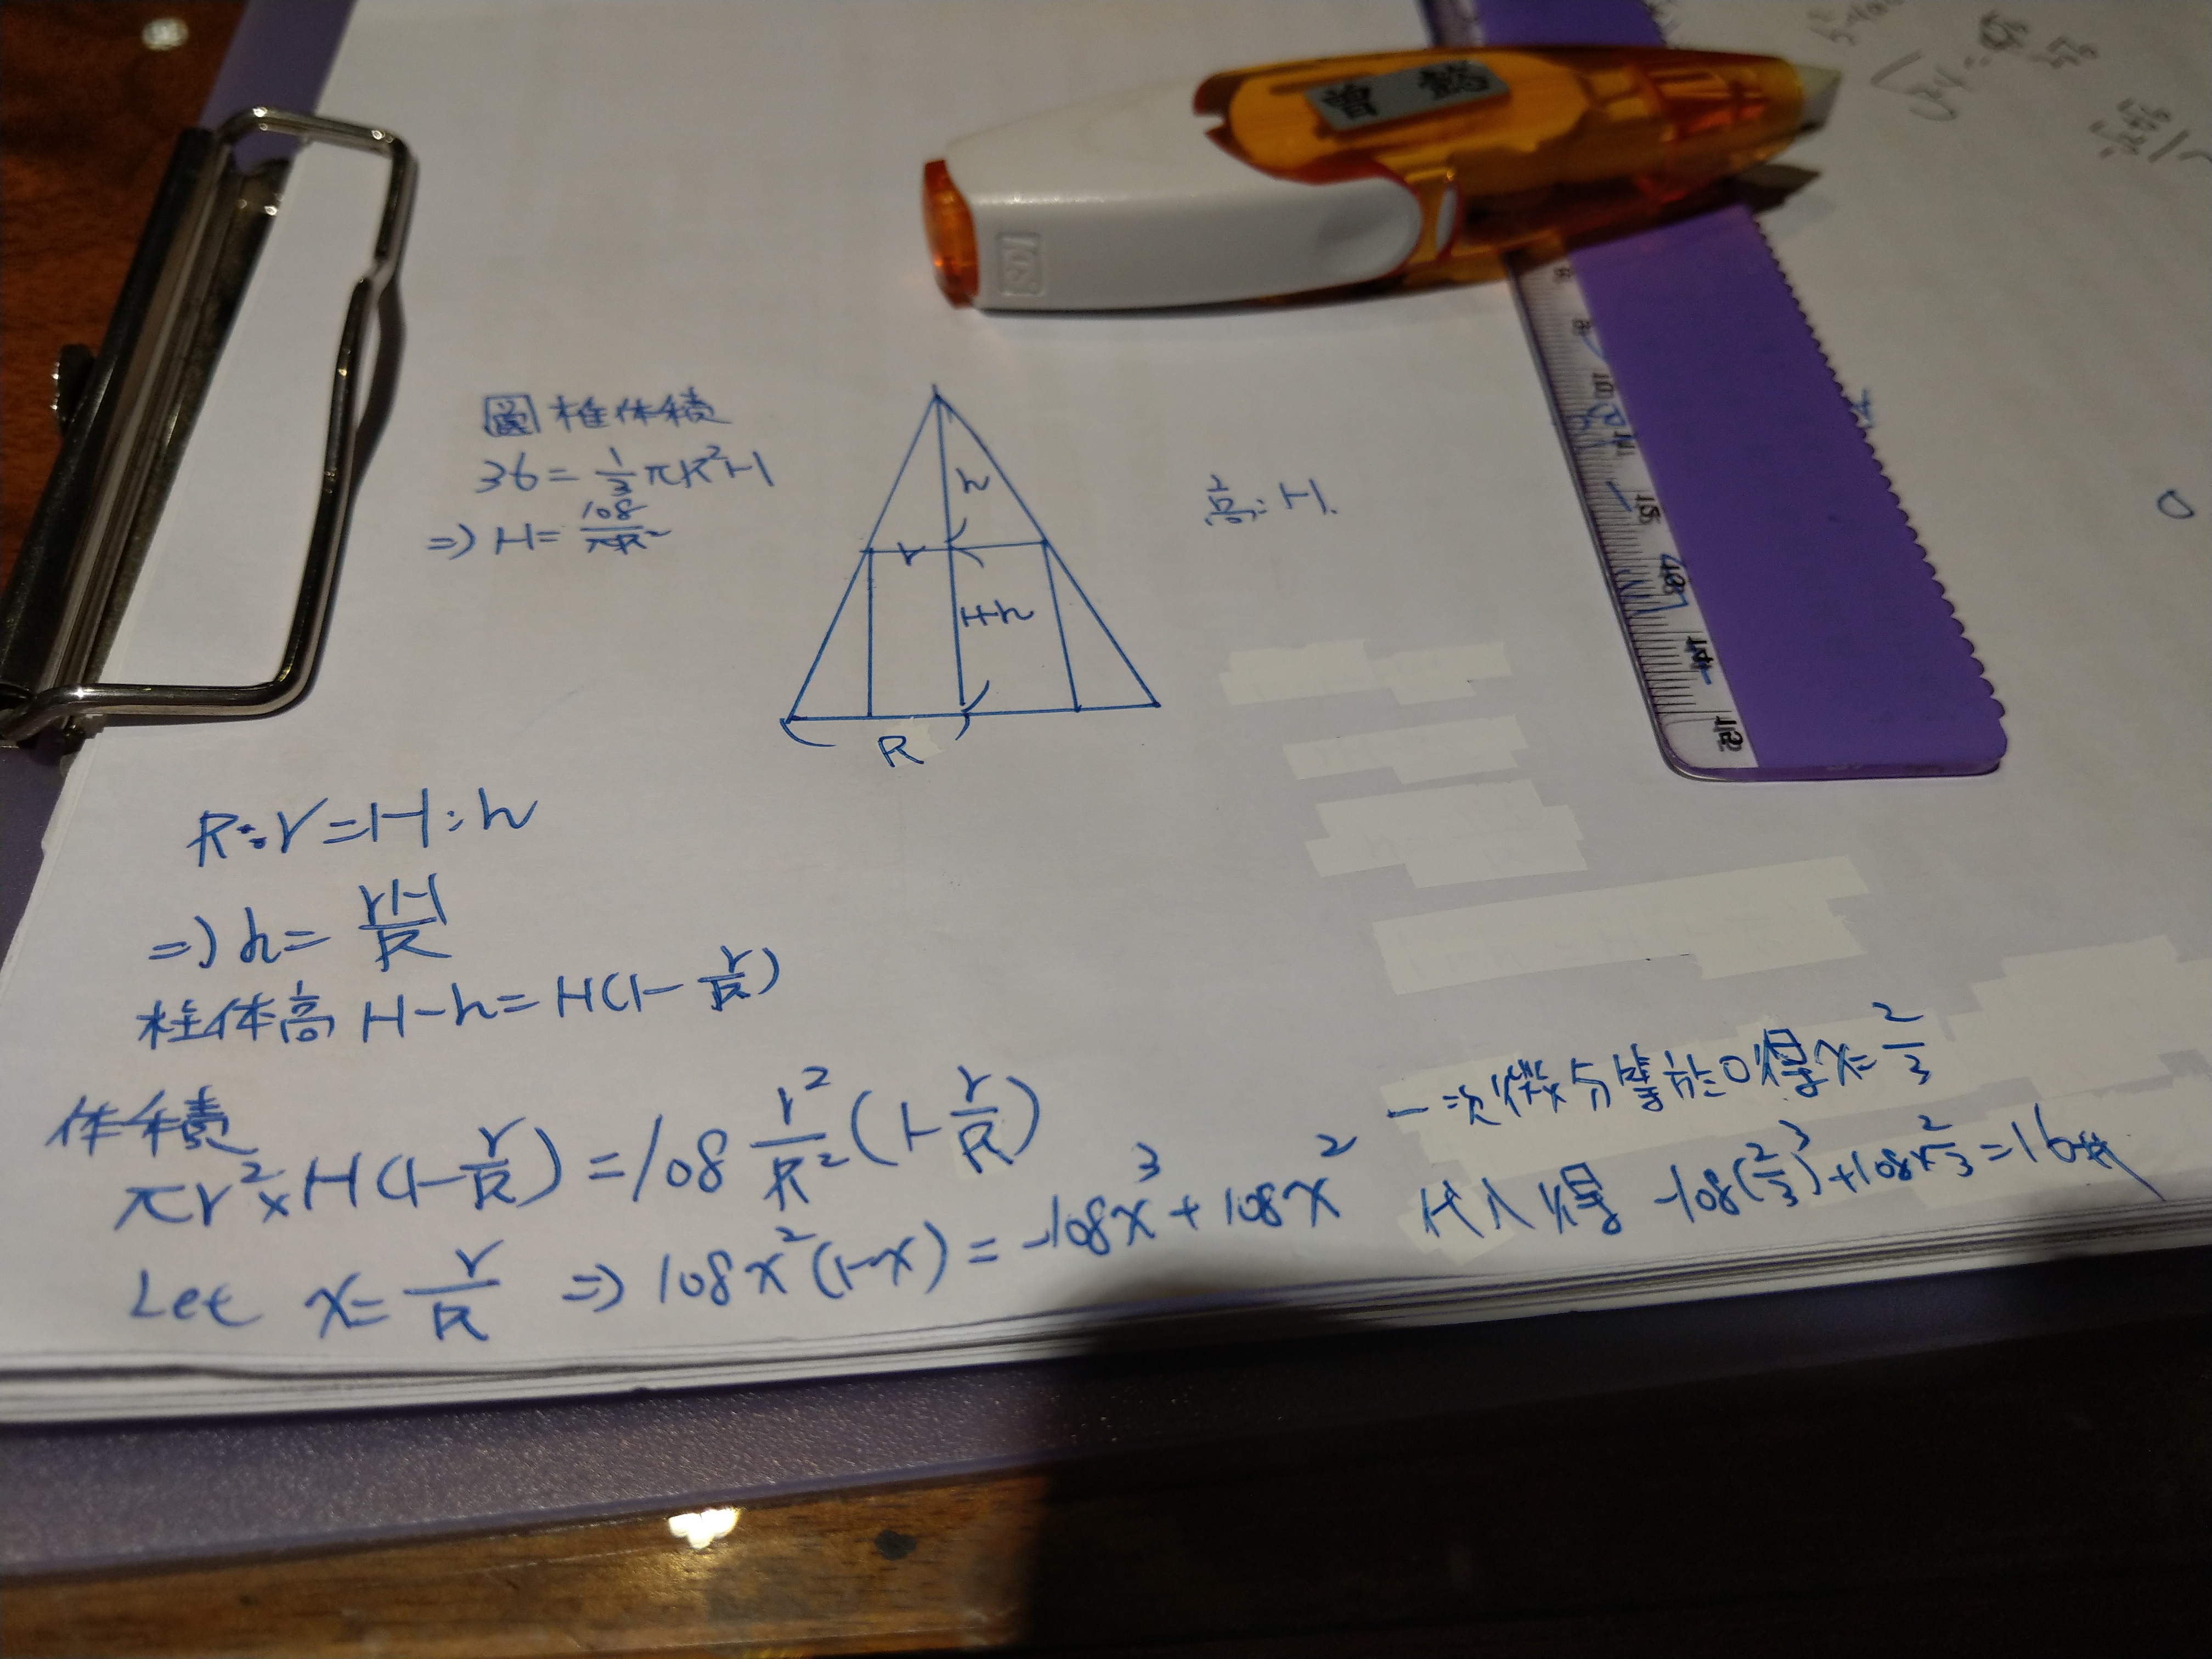 圓椎体積
36 = 1/3 πR²H
⇒ H = 108/πR²
h
r
H-h
R
高: H.
R:r = H:h
⇒ h = rH/R
柱体高 H-h = H(1 - r/R)
体積
πr² × H(1 - r/R) = 108 r²/R² (1 - r/R)
Let x = r/R ⇒ 108x²(1-x) = -108x³ + 108x²
一次微分等於0得 x = 2/3
代入得 -108(2/3)³ + 108×2/3² = 16
SDI